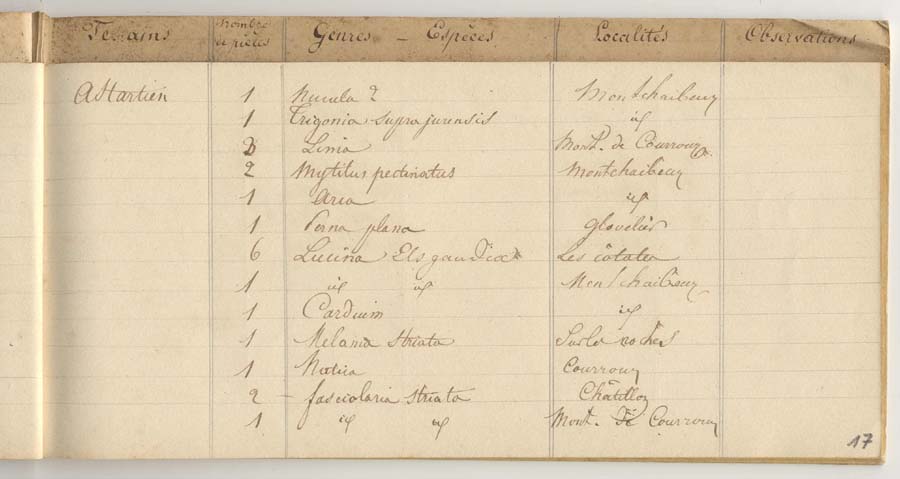 Terrains Nombre de pièces Genres - Espèces Localités Observations
Astartien 1 Nucula ? Montchaibeux
1 Trigonia suprajurensis id
2 Lima Mont. de Courroux
2 Mytilus pectinatus Montchaibeux
1 Arca id
1 Perna plana Glovelier
6 Lucina Elsgaudiæ Les côtates
1 id id Montchaibeux
1 Cardium id
1 Melania striata Surle rochers
1 Natica Courroux
2 - fasciolaria striata Châtillon
1 id id Mont. de Courroux
17